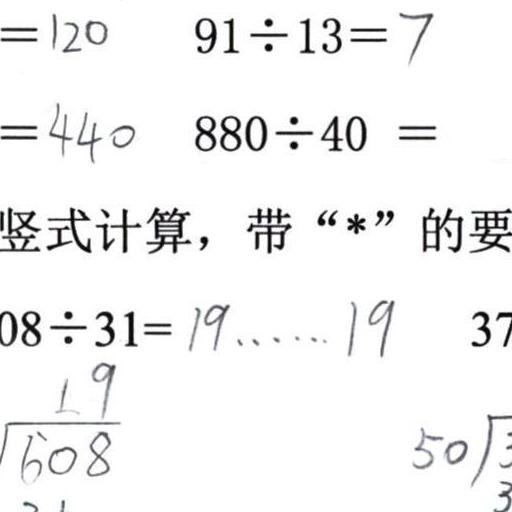 =120 91÷13=7
=440 880÷40 =
竖式计算，带“*”的要
08÷31=19……19 37
19
608 50